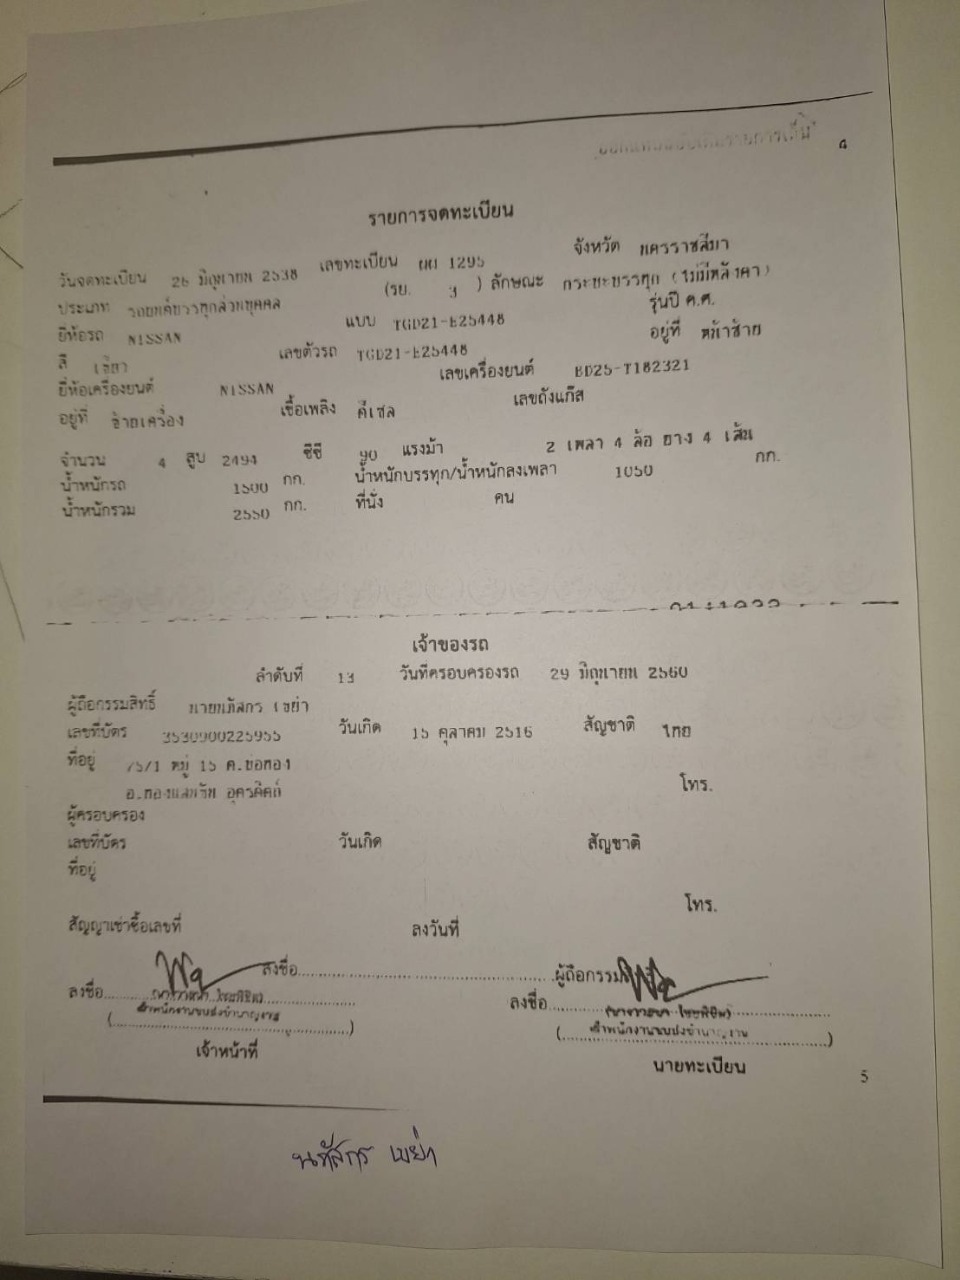 รายการจดทะเบียน
วันจดทะเบียน 26 มิถุนายน 2538 เลขทะเบียน ผผ 1295 จังหวัด นครราชสีมา
ประเภท รถยนต์บรรทุกส่วนบุคคล (รย. 3 ) ลักษณะ กระบะบรรทุก (ไม่มีหลังคา)
ยี่ห้อรถ NISSAN แบบ TGD21-E25448 รุ่นปี ค.ศ.
สี เขียว เลขตัวรถ TGD21-E25448 อยู่ที่ หน้าซ้าย
ยี่ห้อเครื่องยนต์ NISSAN เลขเครื่องยนต์ BD25-T182321
อยู่ที่ ซ้ายเครื่อง เชื้อเพลิง ดีเซล เลขถังแก๊ส
จำนวน 4 สูบ 2494 ซีซี 90 แรงม้า 2 เพลา 4 ล้อ ยาง 4 เส้น
น้ำหนักรถ 1500 กก. น้ำหนักบรรทุก/น้ำหนักลงเพลา 1050 กก.
น้ำหนักรวม 2550 กก. ที่นั่ง คน
เจ้าของรถ
ลำดับที่ 13 วันที่ครอบครองรถ 29 มิถุนายน 2560
ผู้ถือกรรมสิทธิ์ นายนภัสกร เขย่า
เลขที่บัตร 3530900225955 วันเกิด 15 ตุลาคม 2516 สัญชาติ ไทย
ที่อยู่ 75/1 หมู่ 15 ต.บ่อทอง
อ.ทองแสนขัน อุตรดิตถ์ โทร.
ผู้ครอบครอง
เลขที่บัตร วันเกิด สัญชาติ
ที่อยู่
โทร.
สัญญาเช่าซื้อเลขที่ ลงวันที่
ลงชื่อ ผู้ถือกรรม
ลงชื่อ ลงชื่อ
เจ้าพนักงานขนส่งชำนาญงาน เจ้าพนักงานขนส่งชำนาญงาน
เจ้าหน้าที่ นายทะเบียน
5
นภัสกร เขย่า